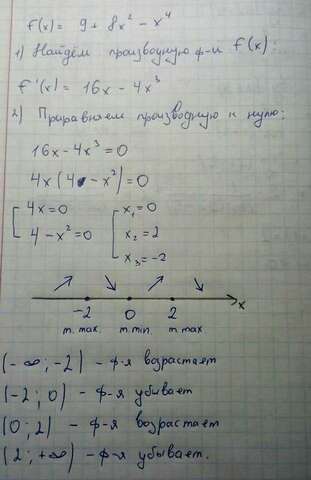 f(x) = 9 + 8x² - x⁴
1) Найдём производную ф-и f(x):
f'(x) = 16x - 4x³
2) Приравняем производную к нулю:
16x - 4x³ = 0
4x(4 - x²) = 0
4x = 0 x₁ = 0
4 - x² = 0 x₂ = 2
x₃ = -2
-2 0 2 x
т. max. т. min. т. max
(-∞; -2) - ф-я возрастает
(-2; 0) - ф-я убывает
(0; 2) - ф-я возрастает
(2; +∞) - ф-я убывает.